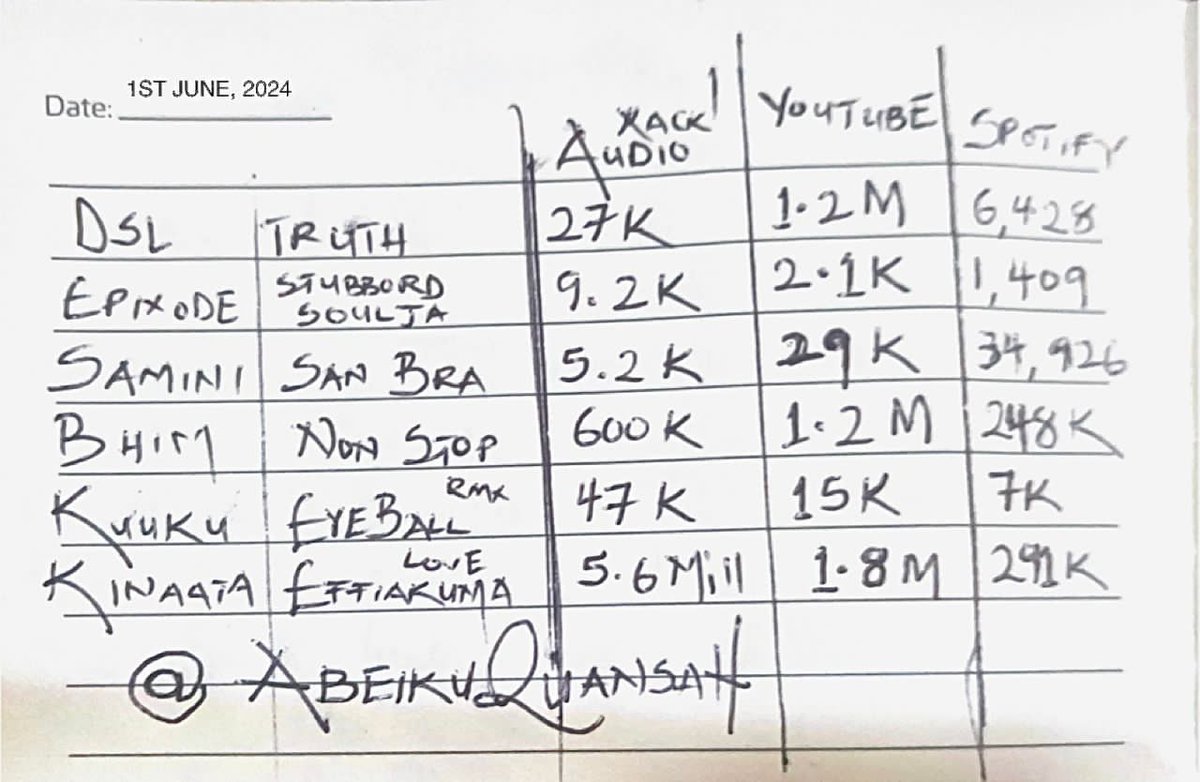 Date: 1ST JUNE, 2024
AUDIOMACK YOUTUBE SPOTIFY
DSL TRUTH 27K 1.2M 6,428
EPIXODE STUBBORD SOULJA 9.2K 2.1K 1,409
SAMINI SAN BRA 5.2K 29K 34,926
BHIM NON STOP 600K 1.2M 248K
KUUKU EYEBALL RMX 47K 15K 7K
KINAATA EFFIAKUMA LOVE 5.6Mill 1.8M 291K
@ABEIKUQUANSAH